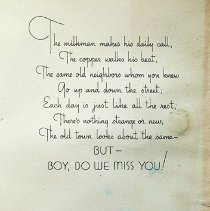 The milkman makes his daily call,
The copper walks his beat,
The same old neighbors whom you knew
Go up and down the street;
Each day is just like all the rest,
There's nothing strange or new,
The old town looks about the same—
BUT—
BOY, DO WE MISS YOU!